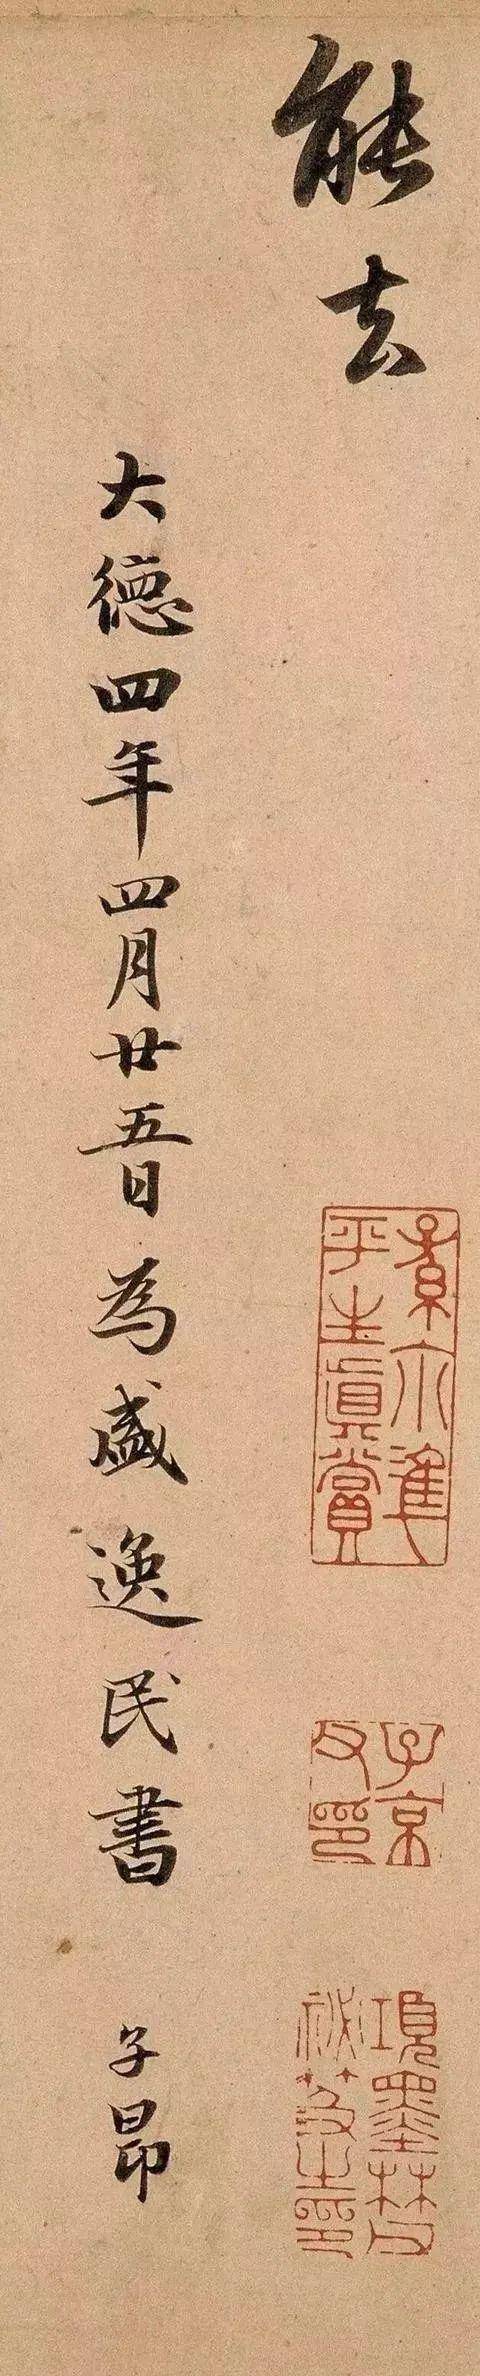 能去
大德四年四月廿五日為盛逸民書 子昂
平生真賞
子京父印
項墨林父祕笈之印